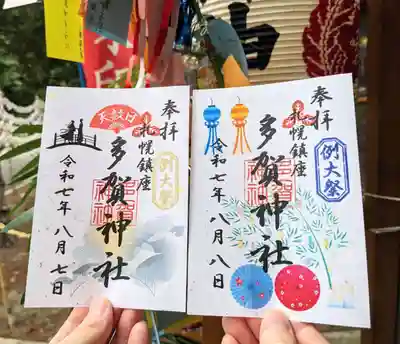 奉拝
天鼓日
札幌鎮座
例大祭
多賀神社
令和七年八月七日
奉拝
札幌鎮座
例大祭
多賀神社
令和七年八月八日